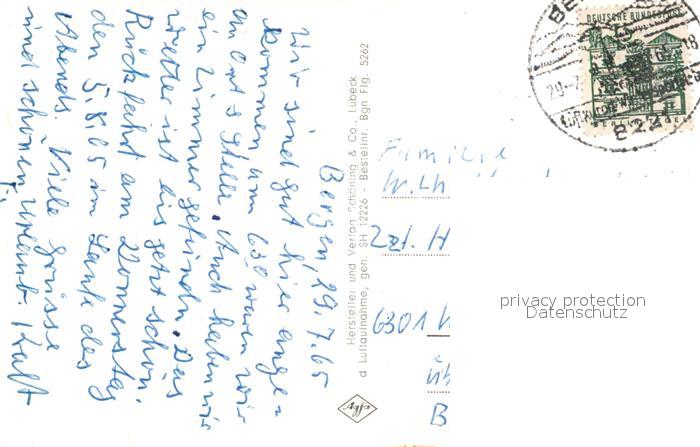 Bergen, 29.7.65
Wir sind gut hier ange=
kommen um 6³⁰ waren wir
an Ort & Stelle. Auch haben wir
ein Zimmer gefunden. Das
Wetter ist bis jetzt schön.
Rückfahrt am Donnerstag
den 5.8.65 im Laufe des
Abends. Viele Grüsse
und schönen Urlaub Kalt
Hersteller und Verlag Schöning & Co., Lübeck
Luftaufnahme, gen. SH 12226 - Bestellnr. Bgn Flg. 5262
Agfa
DEUTSCHE BUNDESPOST
29.7.
Familie
W.Lh
Zzt. H
6301
B
privacy protection
Datenschutz